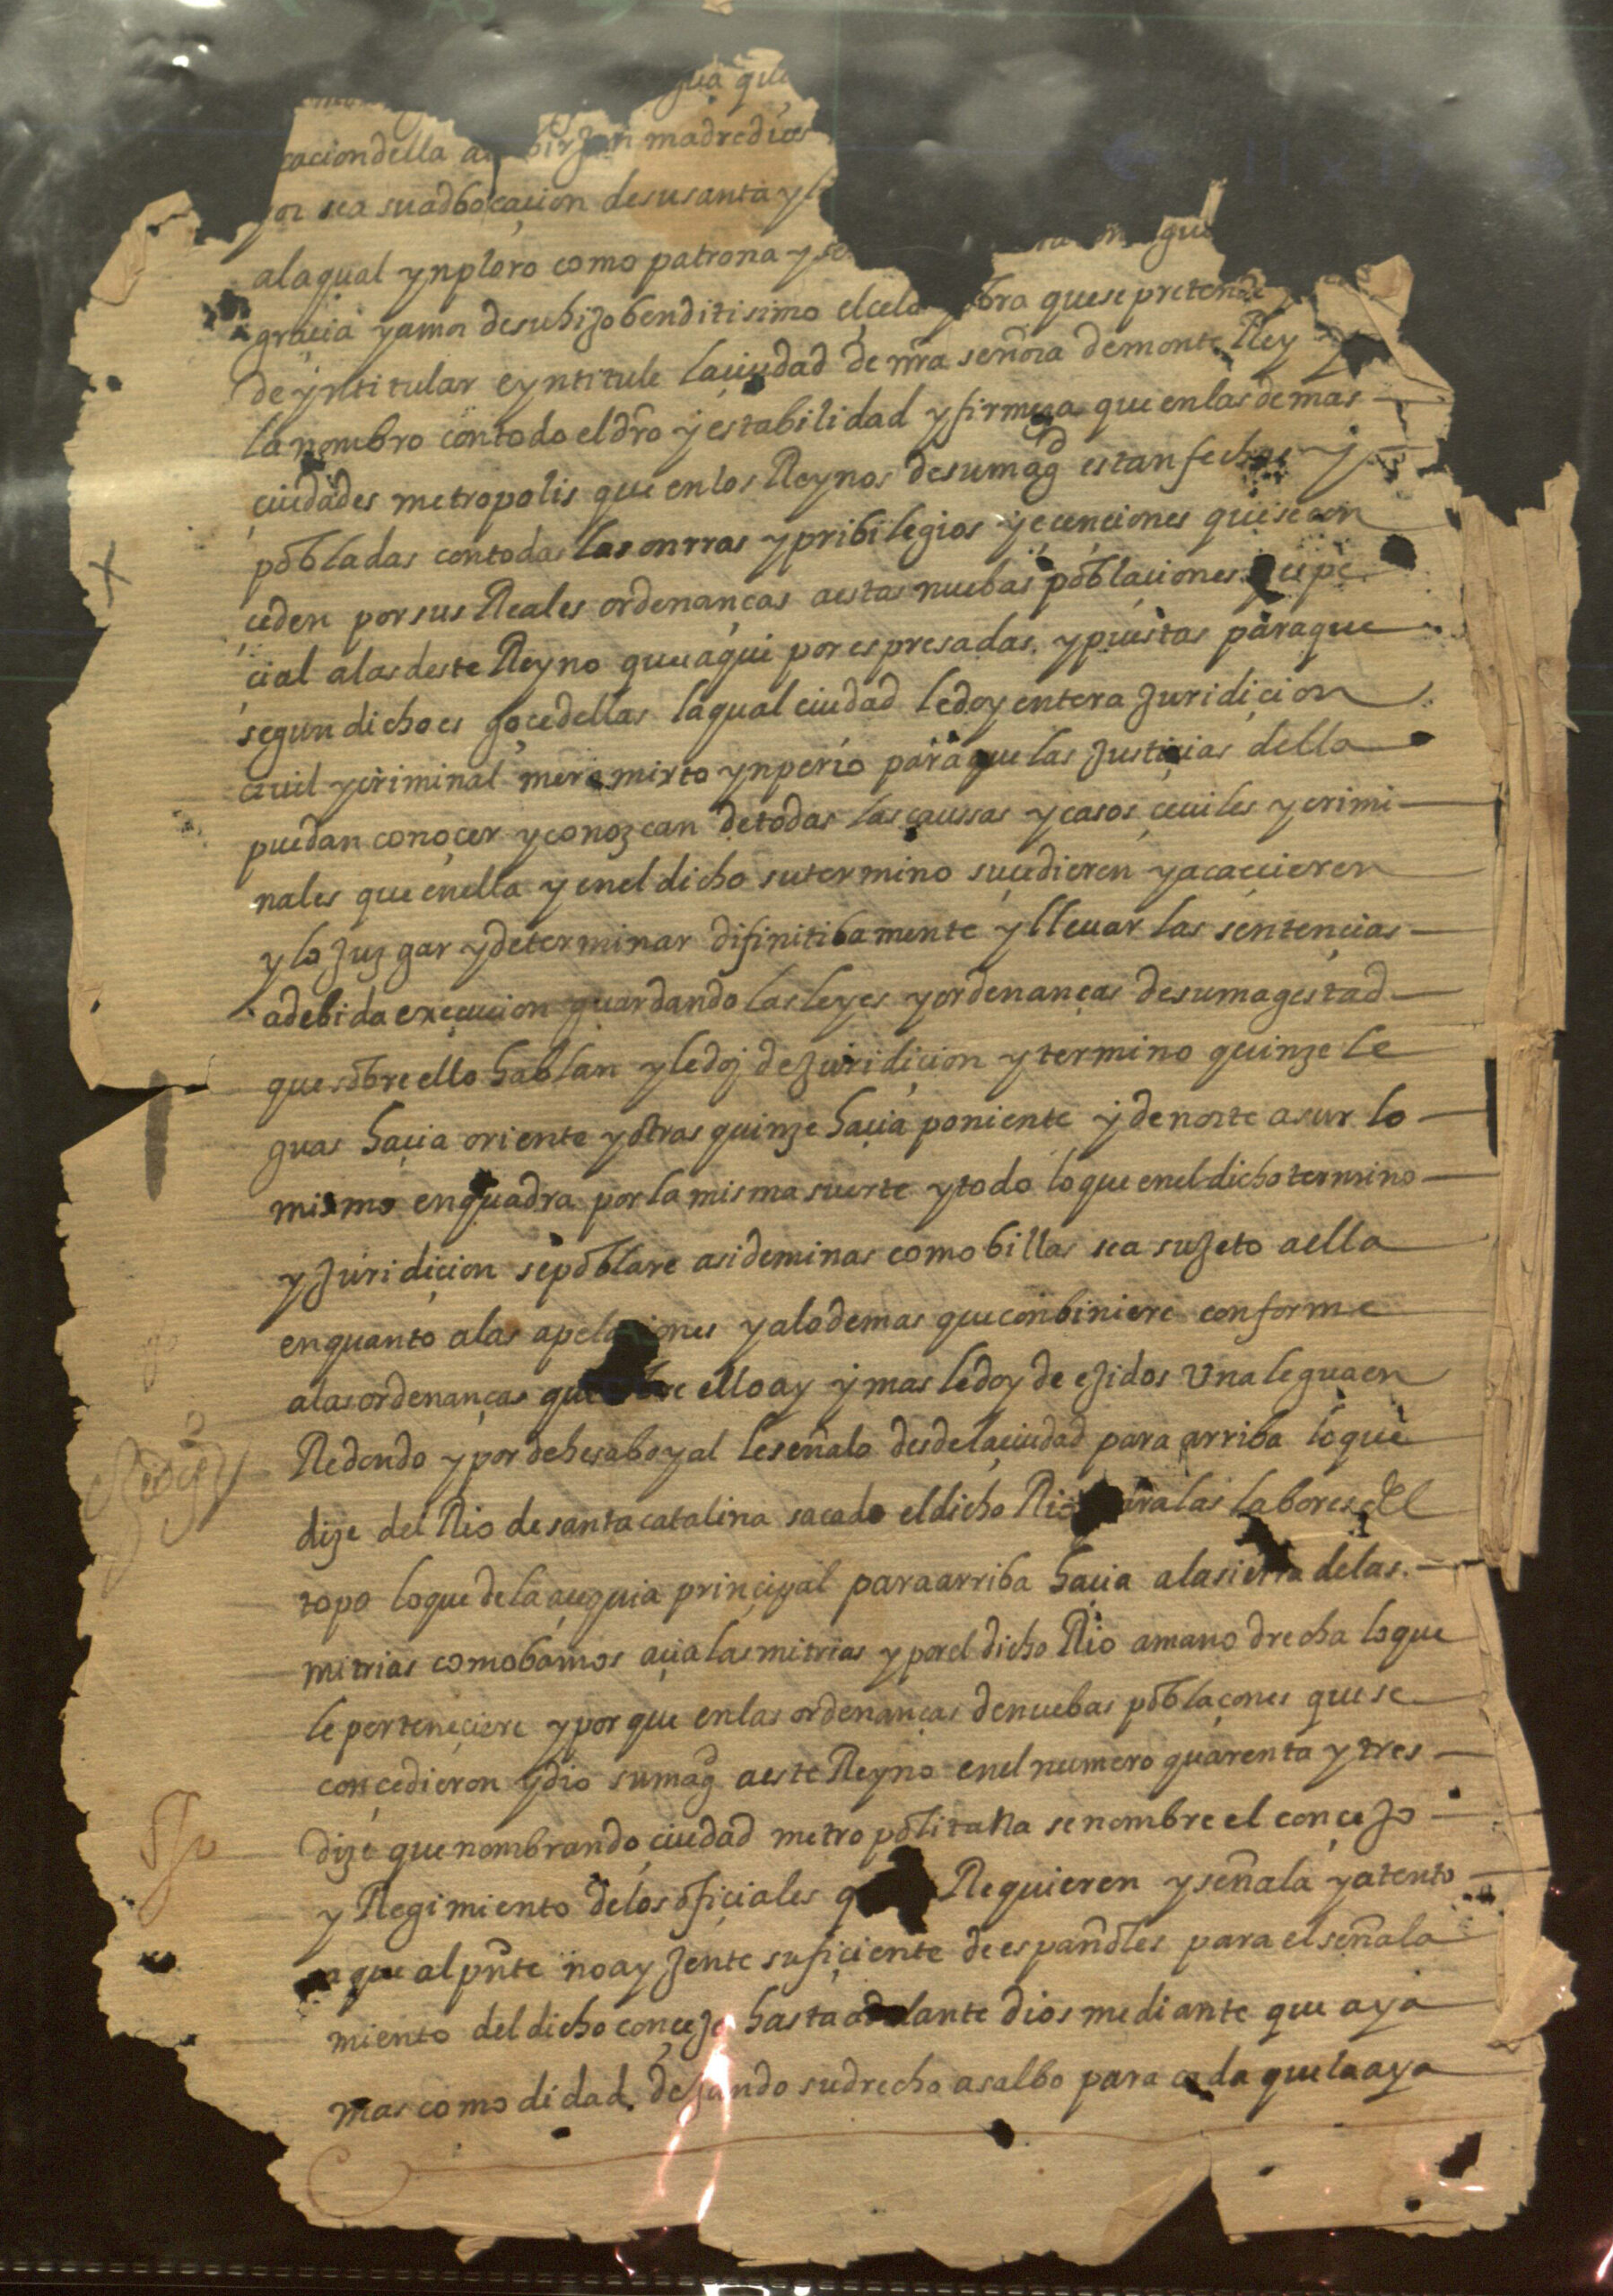 gua que
cacion della a birjen madre dios
yor sea su adbocacion de su santa y
a la qual ynploro como patrona y se
gracia y amor de su hijo benditisimo el cela obra que se pretende
de yntitular e yntitule la ciudad de nra señora de monte Rey y
la nombro con todo el dro y estabilidad y firmeza que en las demas
ciudades metropolis que en los Reynos de su magd estan fechas y
pobladas con todas las onrras y pribilegios y ecenciones que se con
ceden por sus Reales ordenanças a estas nuebas poblaciones y espe
cial a las deste Reyno que aqui por espresadas y puestas para que
segun dicho es goce dellas la qual ciudad le doy entera juridicion
civil y criminal mero mixto ynperio para que las justicias della
puedan conoçer y conozcan de todas las caussas y casos ceviles y crimi
nales que en ella y en el dicho su termino sucedieren y acaecieren
y lo juzgar y determinar difinitibamente y llevar las sentencias
a debida execucion guardando las leyes y ordenanças de su magestad
que sobre ello hablan y le doy de juridicion y termino quinze le
guas hacia oriente y otras quinze hacia poniente y de norte a sur lo
mismo en quadra por la misma suerte y todo lo que en el dicho termino
y juridicion se poblare asi de minas como billas sea sujeto a ella
en quanto a las apelaciones y a lo demas que conbiniere conforme
a las ordenanças que sobre ello ay y mas le doy de ejidos una legua en
Redondo y por dehesa boyal le señalo desde la ciudad para arriba lo que
dize del Rio de santa catalina sacado el dicho Rio para las labores El
topo lo que de la acequia principal para arriba hacia a la sierra de las
mitrias como bamos acia las mitrias y por el dicho Rio a mano drecha lo que
le perteneçiere y por que en las ordenanças de nuebas poblaçones que se
conçedieron y dio su magd a este Reyno en el numero quarenta y tres
dize que nombrando ciudad metropolitana se nombre el concejo
y Regimiento de los oficiales q Requieren y señala y atento
a que al pnte no ay jente suficiente de españoles para el señala
miento del dicho concejo hasta adelante dios mediante que aya
mas comodidad dejando su drecho a salbo para cada que la aya